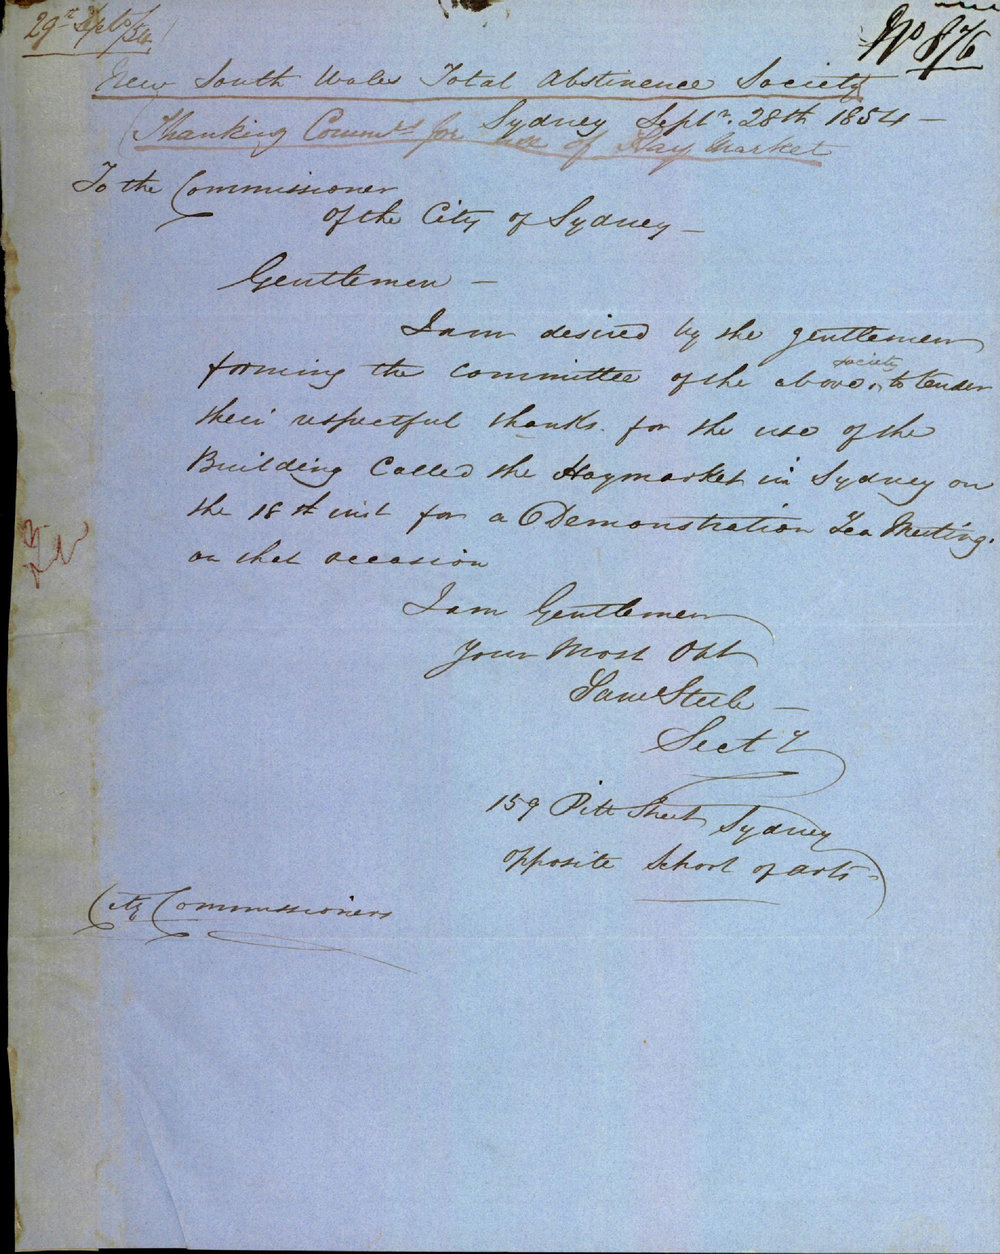 29th Septr /54
No 876
New South Wales Total Abstinence Society
Sydney Septr. 28th 1854 —
Thanking Commrs for use of Hay Market
To the Commissioner
of the City of Sydney —
Gentlemen —
I am desired by the gentlemen
forming the Committee of the above society to tender
their respectful thanks for the use of the
Building Called the Haymarket in Sydney on
the 18th inst for a Demonstration Tea Meeting.
on that occasion
I am Gentlemen
Your Most Obt
Saml Steele —
Secty
159 Pitt Street Sydney
opposite School of Arts
City Commissioners